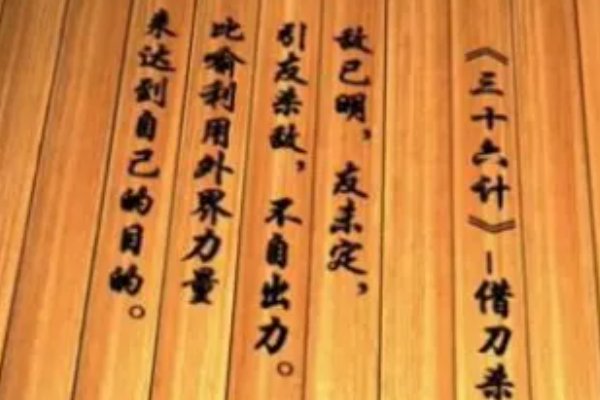 《三十六计》-借刀杀
敌已明，友未定，
引友杀敌，不自出力。
比喻利用外界力量
来达到自己的目的。